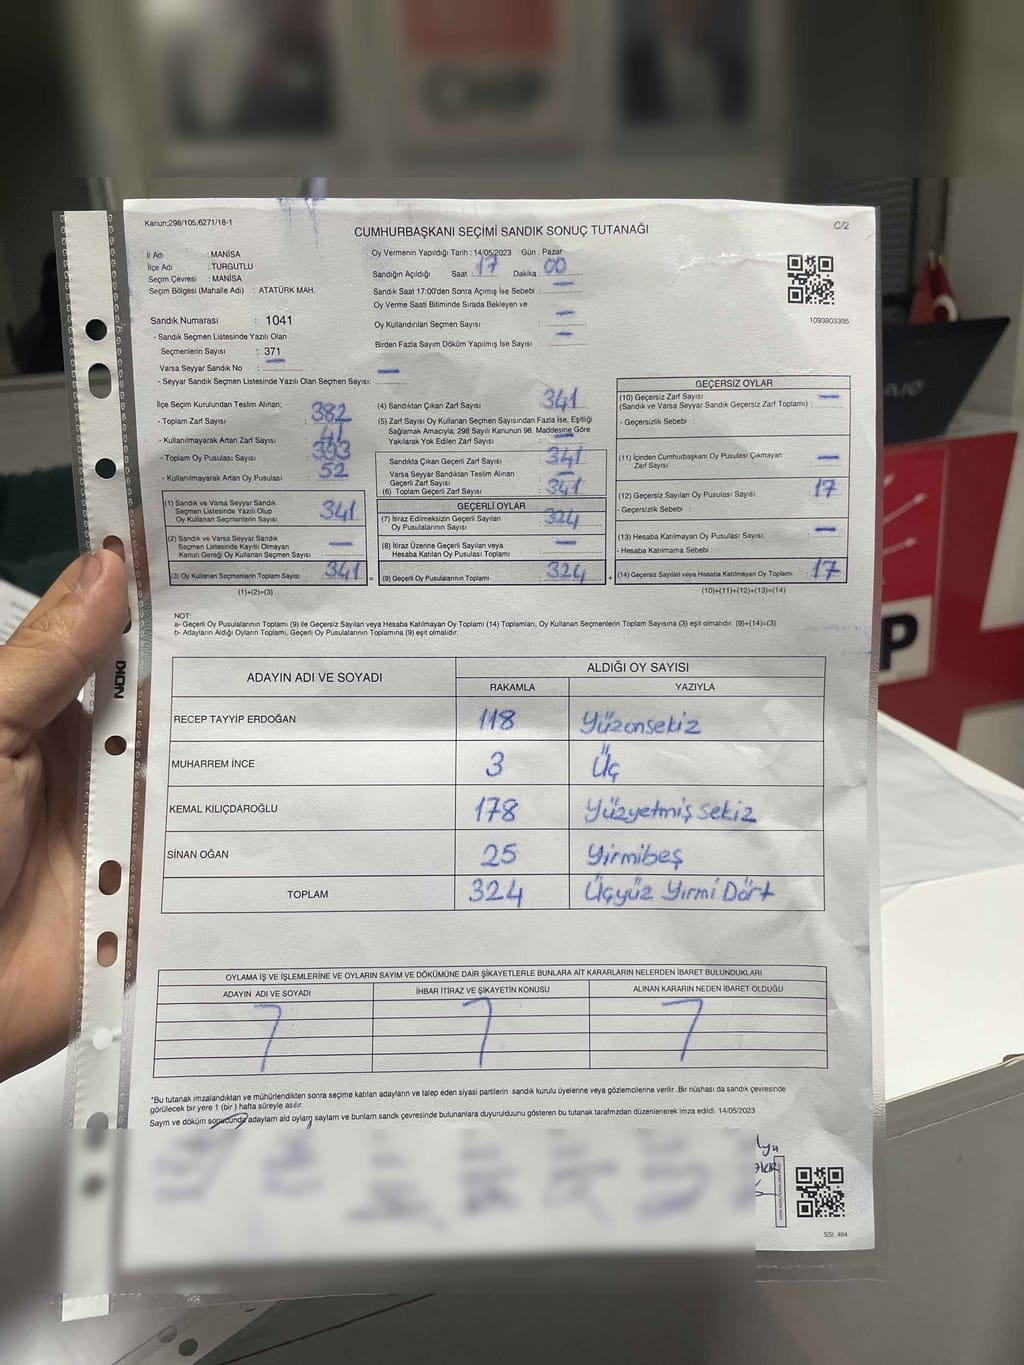 CHP
Kanun:298/105,6271/18-1
CUMHURBAŞKANI SEÇİMİ SANDIK SONUÇ TUTANAĞI
C/2
İl Adı : MANİSA
İlçe Adı : TURGUTLU
Seçim Çevresi : MANİSA
Seçim Bölgesi (Mahalle Adı) : ATATÜRK MAH.
Oy Vermenin Yapıldığı Tarih : 14/05/2023 Gün : Pazar
Sandığın Açıldığı Saat : 17 Dakika : 00
Sandık Saat 17:00'den Sonra Açımış İse Sebebi : —
Oy Verme Saati Bitiminde Sırada Bekleyen ve
Oy Kullandırılan Seçmen Sayısı : —
Birden Fazla Sayım Döküm Yapılmış İse Sayısı : —
1093803395
Sandık Numarası : 1041
- Sandık Seçmen Listesinde Yazılı Olan
Seçmenlerin Sayısı : 371
Varsa Seyyar Sandık No : —
- Seyyar Sandık Seçmen Listesinde Yazılı Olan Seçmen Sayısı: —
İlçe Seçim Kurulundan Teslim Alınan;
- Toplam Zarf Sayısı : 382
- Kullanılmayarak Artan Zarf Sayısı : 41
- Toplam Oy Pusulası Sayısı : 393
- Kullanılmayarak Artan Oy Pusulası : 52
(1) Sandık ve Varsa Seyyar Sandık
Seçmen Listesinde Yazılı Olup
Oy Kullanan Seçmenlerin Sayısı : 341
(2) Sandık ve Varsa Seyyar Sandık
Seçmen Listesinde Kayıtlı Olmayan
Kanun Gereği Oy Kullanan Seçmen Sayısı : —
(3) Oy Kullanan Seçmenlerin Toplam Sayısı : 341
(1)+(2)=(3)
(4) Sandıktan Çıkan Zarf Sayısı : 341
(5) Zarf Sayısı Oy Kullanan Seçmen Sayısından Fazla İse, Eşitliği
Sağlamak Amacıyla; 298 Sayılı Kanunun 98. Maddesine Göre
Yakılarak Yok Edilen Zarf Sayısı : —
Sandıkta Çıkan Geçerli Zarf Sayısı : 341
Varsa Seyyar Sandıktan Teslim Alınan
Geçerli Zarf Sayısı : —
(6) Toplam Geçerli Zarf Sayısı : 341
GEÇERLİ OYLAR
(7) İtiraz Edilmeksizin Geçerli Sayılan
Oy Pusulalarının Sayısı : 324
(8) İtiraz Üzerine Geçerli Sayılan veya
Hesaba Katılan Oy Pusulası Toplamı : —
= (9) Geçerli Oy Pusulalarının Toplamı : 324
GEÇERSİZ OYLAR
(10) Geçersiz Zarf Sayısı : —
(Sandık ve Varsa Seyyar Sandık Geçersiz Zarf Toplamı)
- Geçersizlik Sebebi :
(11) İçinden Cumhurbaşkanı Oy Pusulası Çıkmayan
Zarf Sayısı : —
(12) Geçersiz Sayılan Oy Pusulası Sayısı : 17
- Geçersizlik Sebebi :
(13) Hesaba Katılmayan Oy Pusulası Sayısı: —
- Hesaba Katılmama Sebebi :
+ (14) Geçersiz Sayılan veya Hesaba Katılmayan Oy Toplamı : 17
(10)+(11)+(12)+(13)=(14)
NOT:
a- Geçerli Oy Pusulalarının Toplamı (9) ile Geçersiz Sayılan veya Hesaba Katılmayan Oy Toplamı (14) Toplamları, Oy Kullanan Seçmenlerin Toplam Sayısına (3) eşit olmalıdır. (9)+(14)=(3)
b- Adayların Aldığı Oyların Toplamı, Geçerli Oy Pusulalarının Toplamına (9) eşit olmalıdır.
ADAYIN ADI VE SOYADI
ALDIĞI OY SAYISI
RAKAMLA YAZIYLA
RECEP TAYYİP ERDOĞAN 118 Yüzonsekiz
MUHARREM İNCE 3 Üç
KEMAL KILIÇDAROĞLU 178 Yüzyetmiş sekiz
SİNAN OĞAN 25 Yirmibeş
TOPLAM 324 Üçyüz Yırmi Dört
OYLAMA İŞ VE İŞLEMLERİNE VE OYLARIN SAYIM VE DÖKÜMÜNE DAİR ŞİKAYETLERLE BUNLARA AİT KARARLARIN NELERDEN İBARET BULUNDUKLARI
ADAYIN ADI VE SOYADI İHBAR İTİRAZ VE ŞİKAYETİN KONUSU ALINAN KARARIN NEDEN İBARET OLDUĞU
*Bu tutanak imzalandıktan ve mühürlendikten sonra seçime katılan adayların ve talep eden siyasi partilerin sandık kurulu üyelerine veya gözlemcilerine verilir .Bir nüshası da sandık çevresinde
görülecek bir yere 1 (bir ) hafta süreyle asılır.
Sayım ve döküm sonucunda adayların ald oyların saylam ve bunlarn sandk çevresinde bulunanlara duyurulduunu gösteren bu tutanak tarafmzdan düzenlenerek imza edildi. 14/05/2023
SSI_404
P